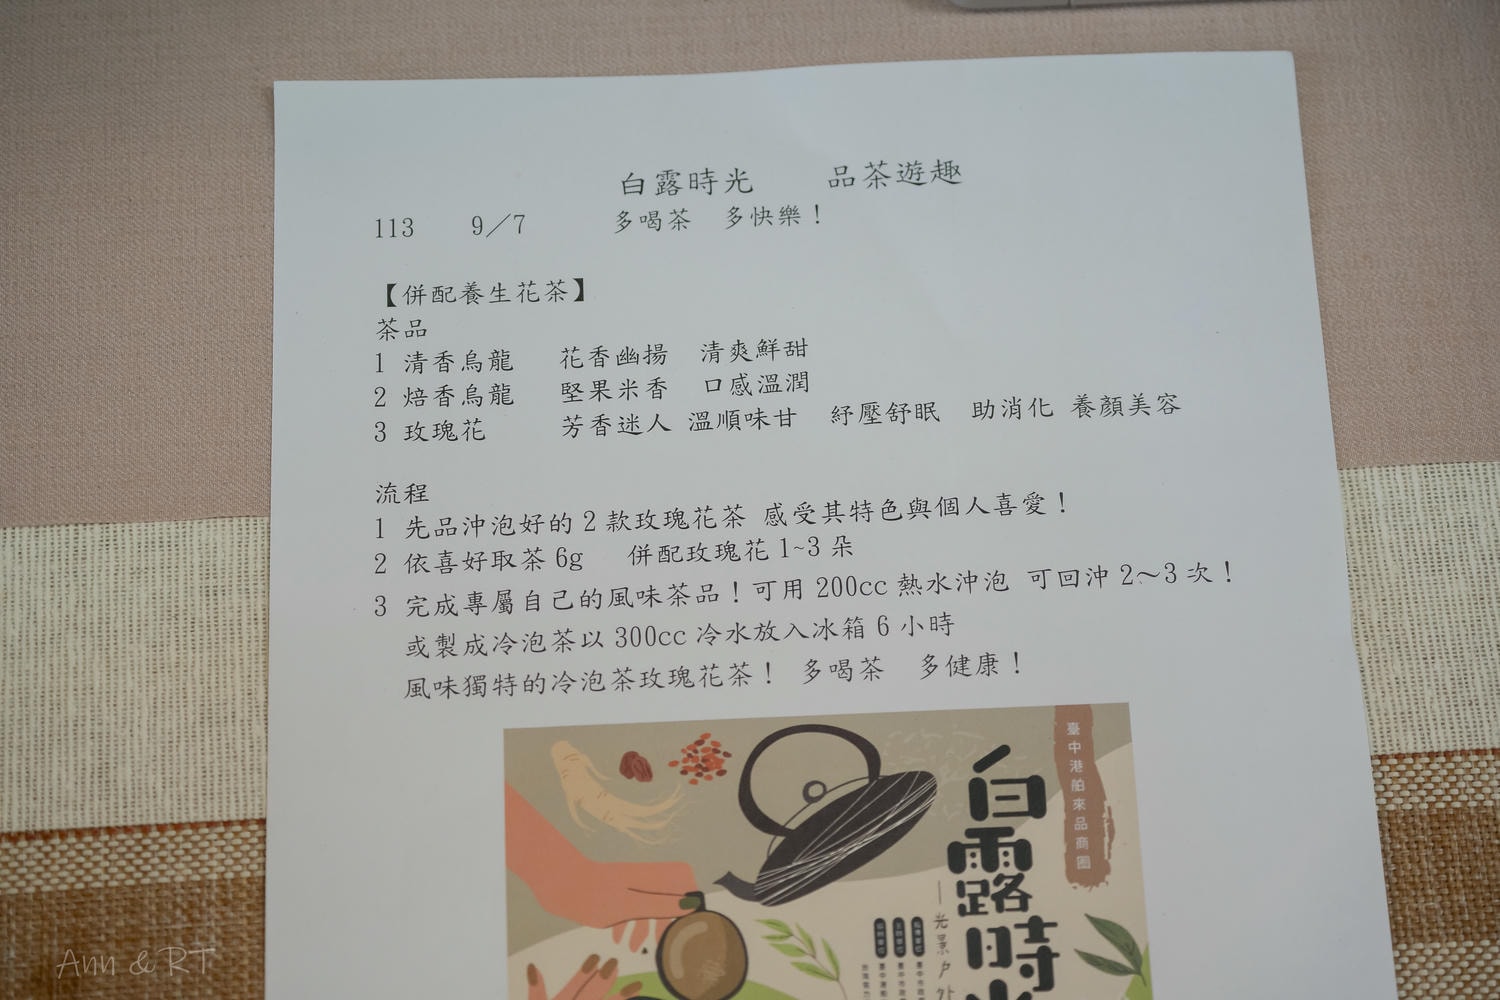 白露時光　　品茶遊趣
113　9／7　　多喝茶　多快樂！
【併配養生花茶】
茶品
1 清香烏龍　花香幽揚　清爽鮮甜
2 焙香烏龍　堅果米香　口感溫潤
3 玫瑰花　　芳香迷人 溫順味甘　紓壓舒眠　助消化 養顏美容
流程
1 先品沖泡好的 2 款玫瑰花茶 感受其特色與個人喜愛！
2 依喜好取茶 6g　併配玫瑰花 1~3 朵
3 完成專屬自己的風味茶品！可用 200cc 熱水沖泡 可回沖 2～3 次！
或製成冷泡茶以 300cc 冷水放入冰箱 6 小時
風味獨特的冷泡茶玫瑰花茶！ 多喝茶　多健康！
臺中港舶來品商圈
白露時光
光景戶外
Ann & RT